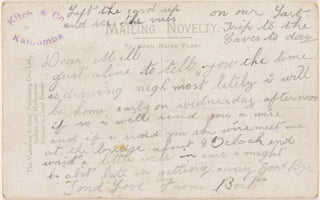 Kitch & Co
Katoomba
Lift the card up
and see the views
on our Last
Trip to the
Caves to day
MAILING NOVELTY.
TO OPEN RAISE FLAP
Dear Mill
Just alone to tell you the time
is drawing nigh most lutely i will
be home early on wednesday afternoon
if so i will send you a wire
and if i send you one wire meet me
at the bridge about 8 Oclock and
wait a little while in care i might
be abit late in getting away Good Bye
Fond Love From Bert